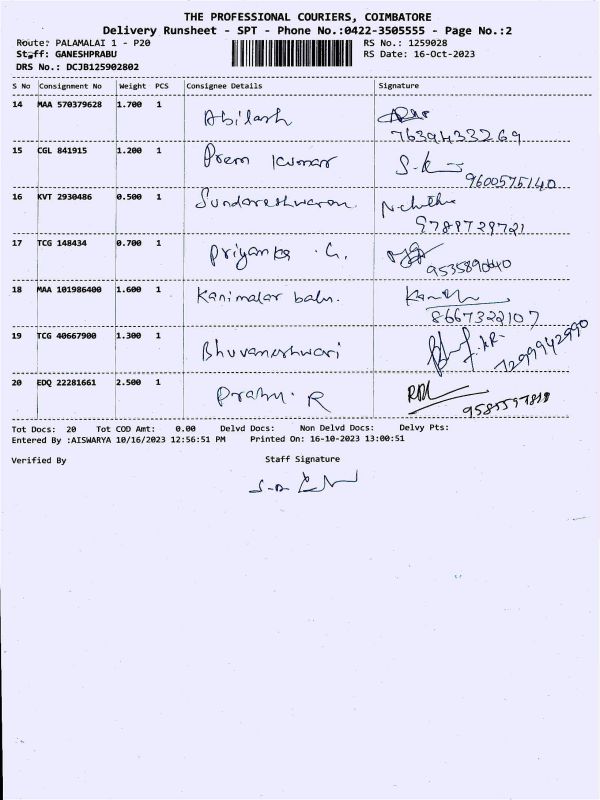 THE PROFESSIONAL COURIERS, COIMBATORE
Delivery Runsheet - SPT - Phone No.:0422-3505555 - Page No.:2
Route: PALAMALAI 1 - P20 RS No.: 1259028
Staff: GANESHPRABU RS Date: 16-Oct-2023
DRS No.: DCJB125902802
S No Consignment No Weight PCS Consignee Details Signature
14 MAA 570379628 1.700 1 Abilash
7639433269
15 CGL 841915 1.200 1 Prem Kumar S.K
9600575140
16 KVT 2930486 0.500 1 Sundareshwaran
9789729721
17 TCG 148434 0.700 1 Priyanka . G.
9535890440
18 MAA 101986400 1.600 1 Kanimalar balu.
8667322107
19 TCG 40667900 1.300 1 Bhuvaneshwari
7299942990
20 EDQ 22281661 2.500 1 Prabu. R
Tot Docs: 20 Tot COD Amt: 0.00 Delvd Docs: Non Delvd Docs: Delvy Pts:
Entered By :AISWARYA 10/16/2023 12:56:51 PM Printed On: 16-10-2023 13:00:51
Verified By Staff Signature